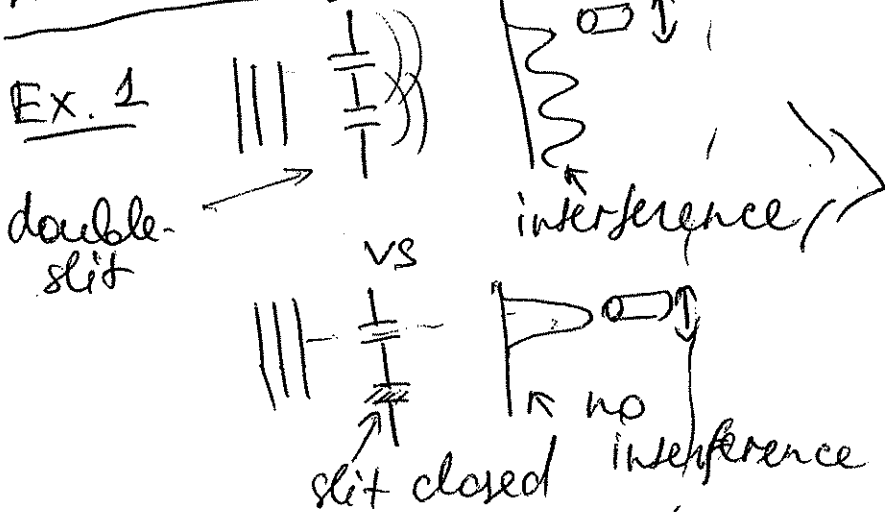 Ex. 1
double-
slit
interference
vs
no
interference
slit closed